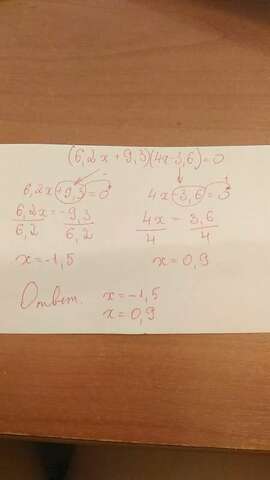 (6,2x + 9,3)(4x-3,6)=0
6,2x+9,3=0 4x-3,6=0
6,2x=-9,3 4x = 3,6
6,2 6,2 4 4
x=-1,5 x=0,9
Ответ. x=-1,5
x=0,9